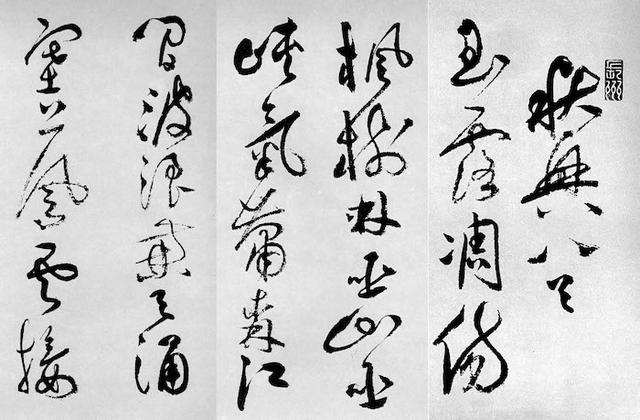 秋興八首
玉露凋傷
楓樹林巫山巫
峽氣蕭森江
間波浪兼天涌
塞上風雲接